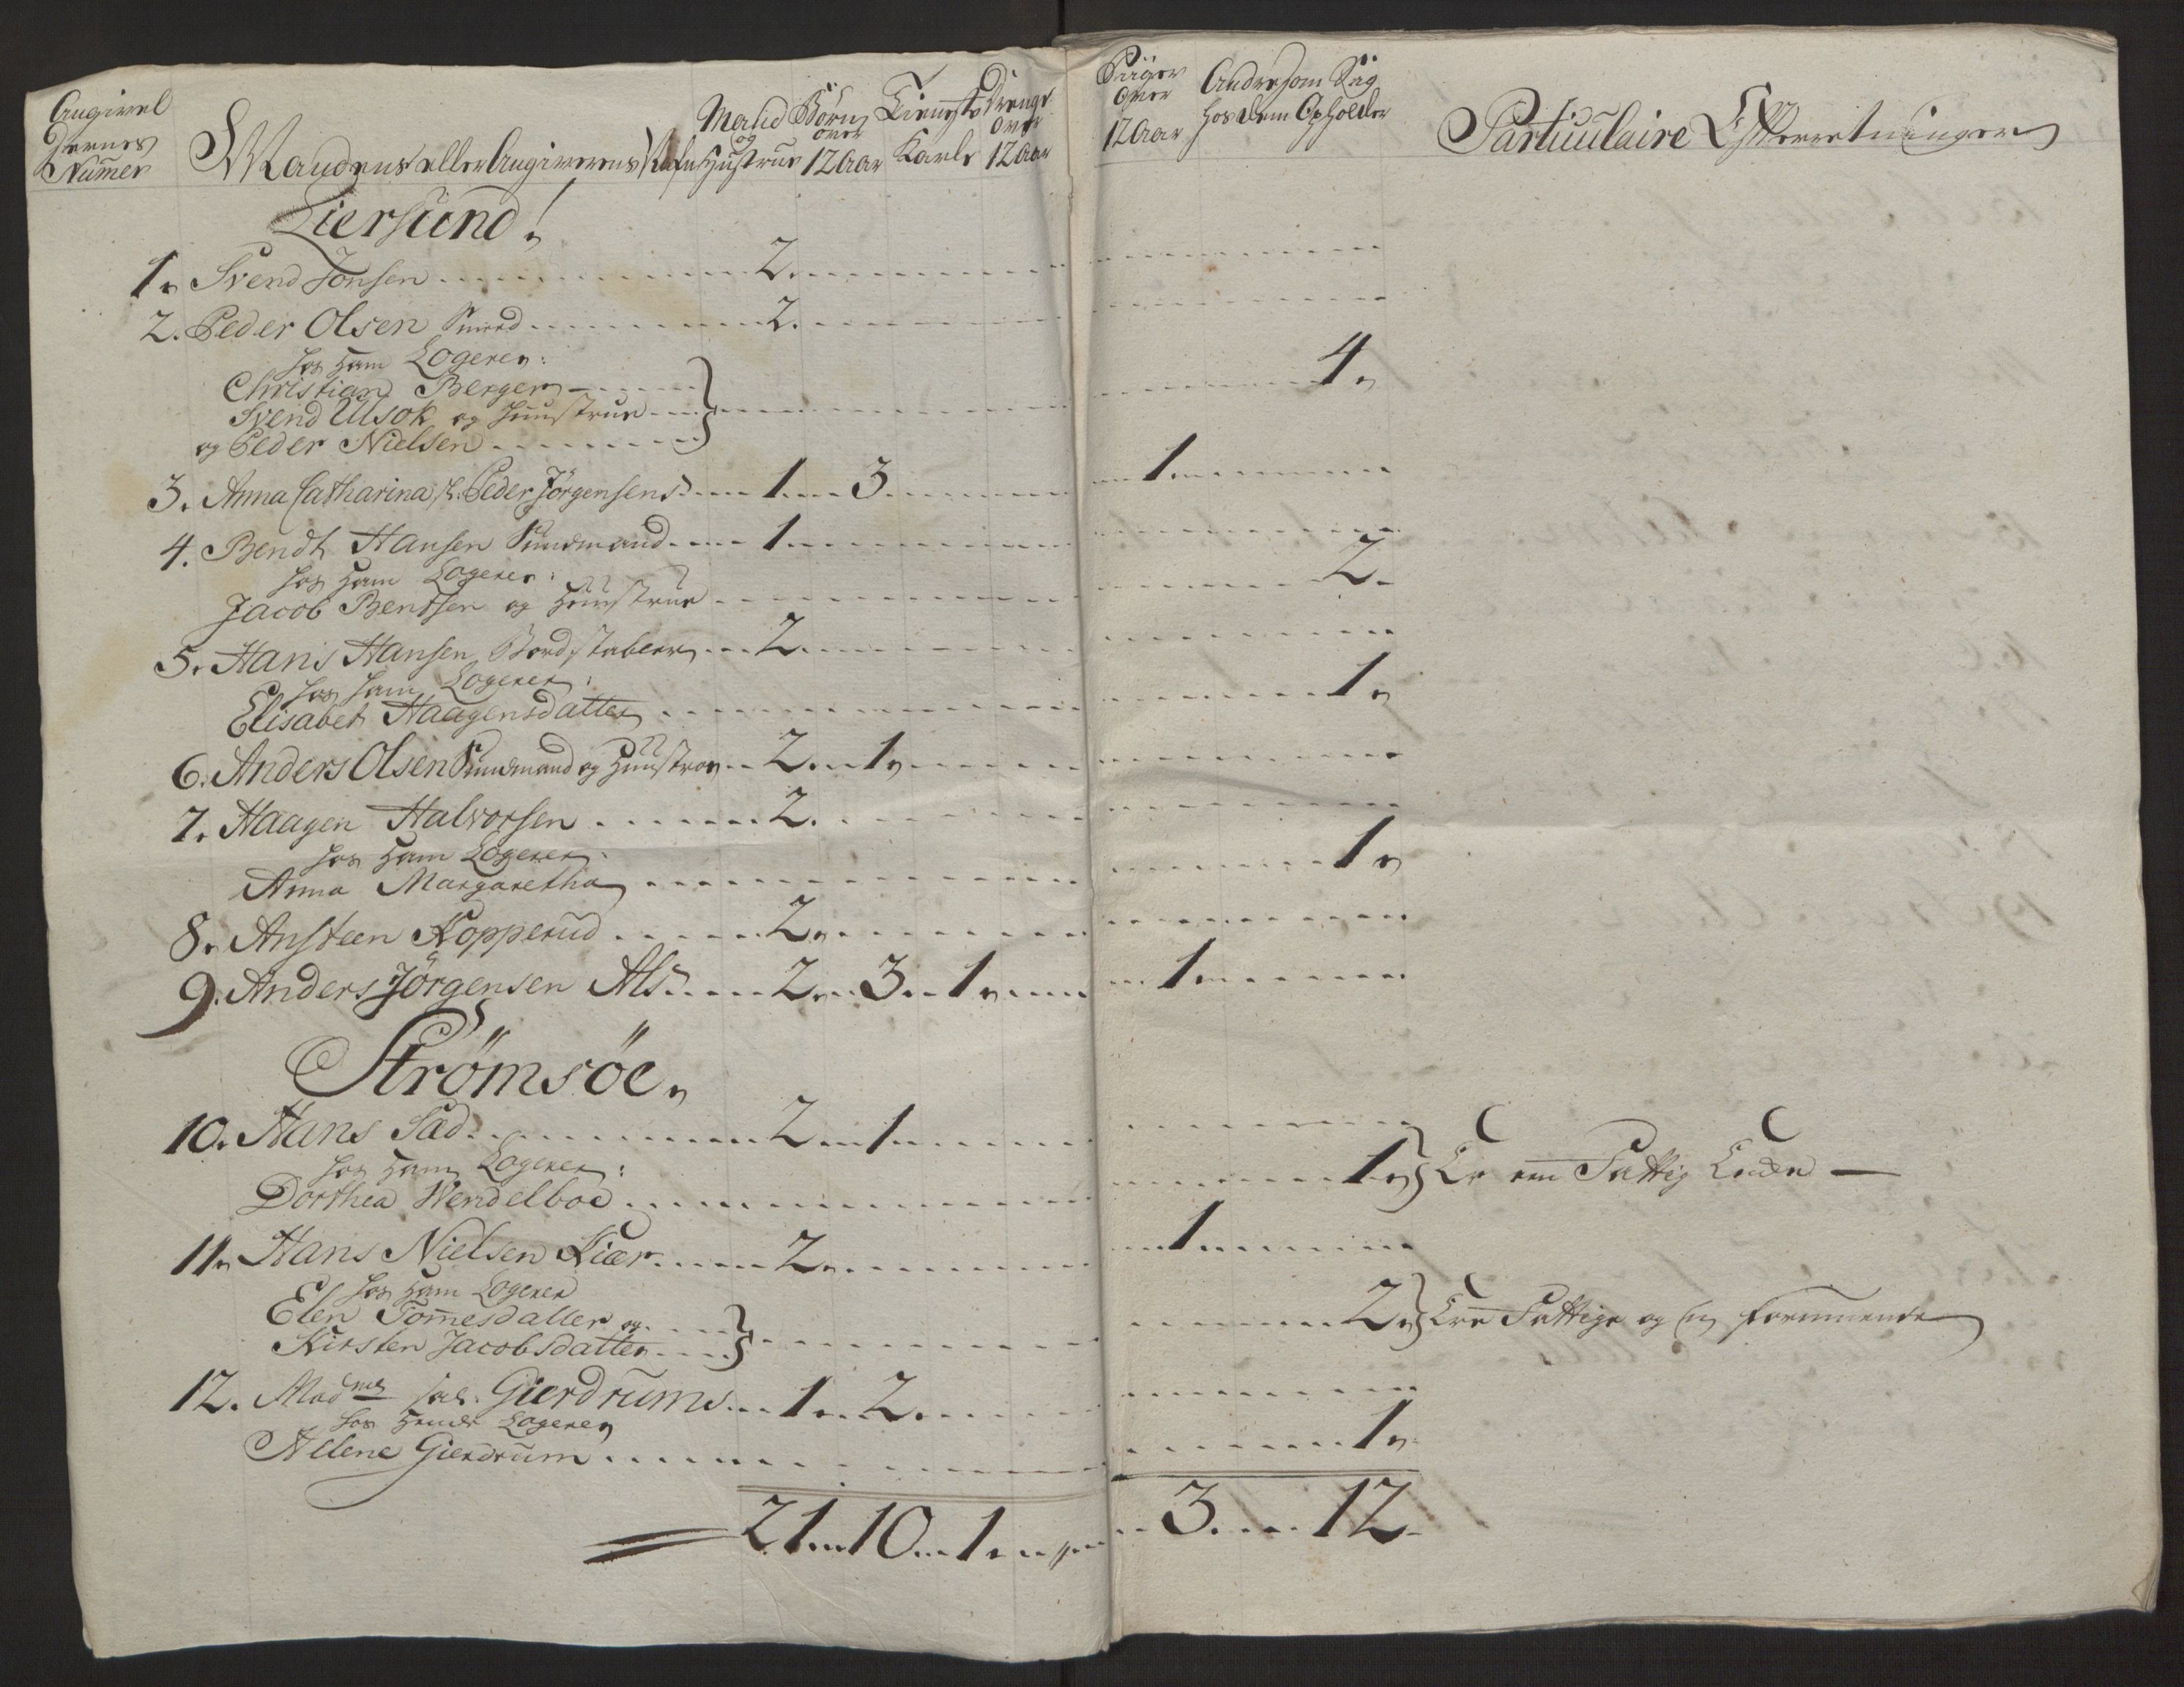 Angivel
sernes
Numer
Mandens eller Angiverens Nafn
Mand
og
Hustrue
Börn
over
12 Aar
Tieneste
Karle
Drenge
over
12 Aar
Piiger
over
12 Aar
Andre som Sig
hos dem Opholder
Particulaire Efterretninger
Liersund!
1. Svend Jonsen 2.
2. Peder Olsen Smed 2.
hos ham Logerer:
Christian Berger
Svend Ulsok og Huustrue 4.
og Peder Nielsen
3. Anna Catharina Peder Jörgensens 1 3 1
4. Bendt Hansen Sundmand 1
hos ham Logerer:
Jacob Bentsen og Huustrue 2.
5. Hans Hansen Bordstabler 2
hos ham Logerer:
Elisabet Haagensdatter 1.
6. Anders Olsen Sundmand og Huustroe 2 1.
7. Haagen Halvorsen 2.
hos ham Logerer:
Anna Margaretha 1.
8. Ansteen Kopperud 2.
9. Anders Jörgensen Als 2. 3. 1. 1
Strömsöe.
10. Hans Sæd 2 1
hos ham Logerer:
Dorthea Wendelboe 1. Er em Fattig Encke
11. Hans Nielsen Kiær 2. 1
hos ham Logerer
Elen Tomesdatter og
Kirsten Jacobsdatter 2. Ere Fattige og
12. Madme sal. Gierdrums 1. 2.
hos hende Logerer
Helene Gierdrum 1.
21 10 1 3. 12